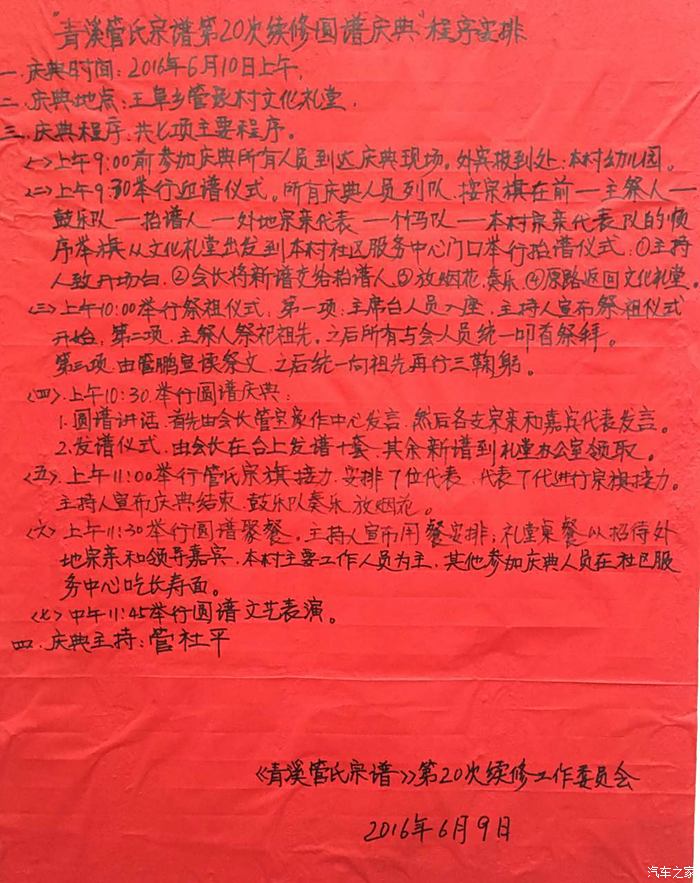 "青溪管氏宗谱第20次续修圆谱庆典"程序安排
一.庆典时间:2016年6月10日上午.
二.庆典地点:王阜乡管家村文化礼堂.
三.庆典程序:共七项主要程序。
<一>上午9:00前参加庆典所有人员到达庆典现场。外宾报到处:本村幼儿园。
<二>上午9:30举行迎谱仪式。所有庆典人员列队.按宗旗在前一主祭人一
鼓乐队一抬谱人一外地宗亲代表一什马队一本村宗亲代表队的顺
序举旗从文化礼堂出发到本村社区服务中心门口举行抬谱仪式:①主持
人致开场白.②会长将新谱交给抬谱人③放烟花.奏乐.④原路返回文化礼堂。
<三>上午10:00举行祭祖仪式:第一项:主席台人员入座.主持人宣布祭祖仪式
开始;第二项.主祭人祭祀祖先.之后所有与会人员统一叩首祭拜。
第三项.由管鹏宣读祭文.之后统一向祖先再行三鞠躬。
<四>.上午10:30.举行圆谱庆典:
1.圆谱讲话.首先由会长管宝家作中心发言.然后各支宗亲和嘉宾代表发言。
2.发谱仪式.由会长在台上发谱十套.其余新谱到礼堂办公室领取。
<五>.上午11:00举行管氏宗旗接力.安排7位代表.代表7代进行宗旗接力。
主持人宣布庆典结束.鼓乐队奏乐.放烟花。
<六>上午11:30举行圆谱聚餐.主持人宣布用餐安排;礼堂桌餐以招待外
地宗亲和领导嘉宾.本村主要工作人员为主.其他参加庆典人员在社区服
务中心吃长寿面。
<七>中午11:45举行圆谱文艺表演。
四.庆典主持:管社平
《青溪管氏宗谱》第20次续修工作委员会
2016年6月9日
汽车之家